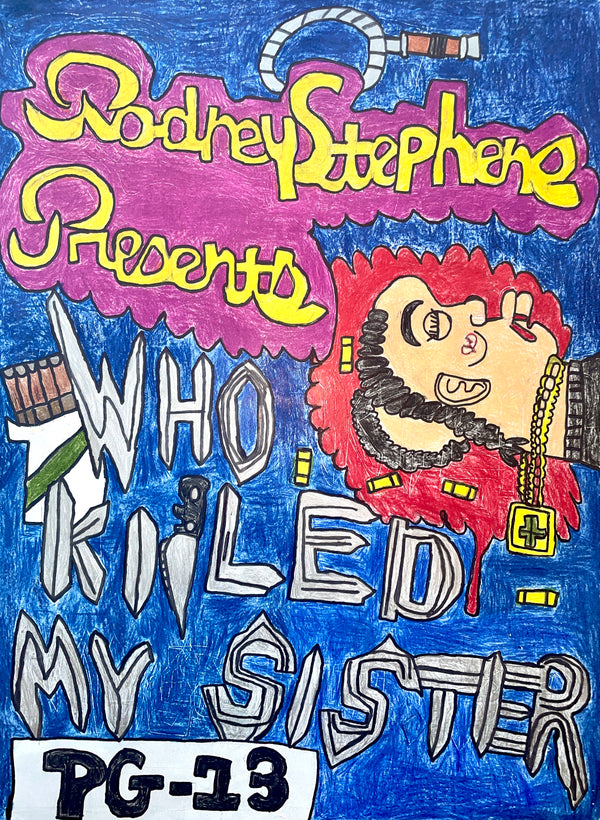 Rodney Stephens
Presents
WHO
KILLED
MY SISTER
PG-13